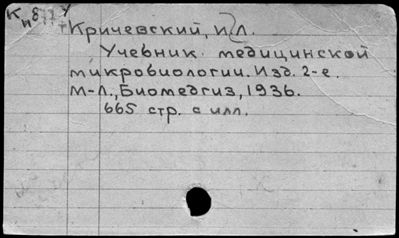 Кричевский, И. Л.
Учебник медицинской
микробиологии. Изд. 2-е.
М-Л., Биомедгиз, 1936.
665 стр. с илл.